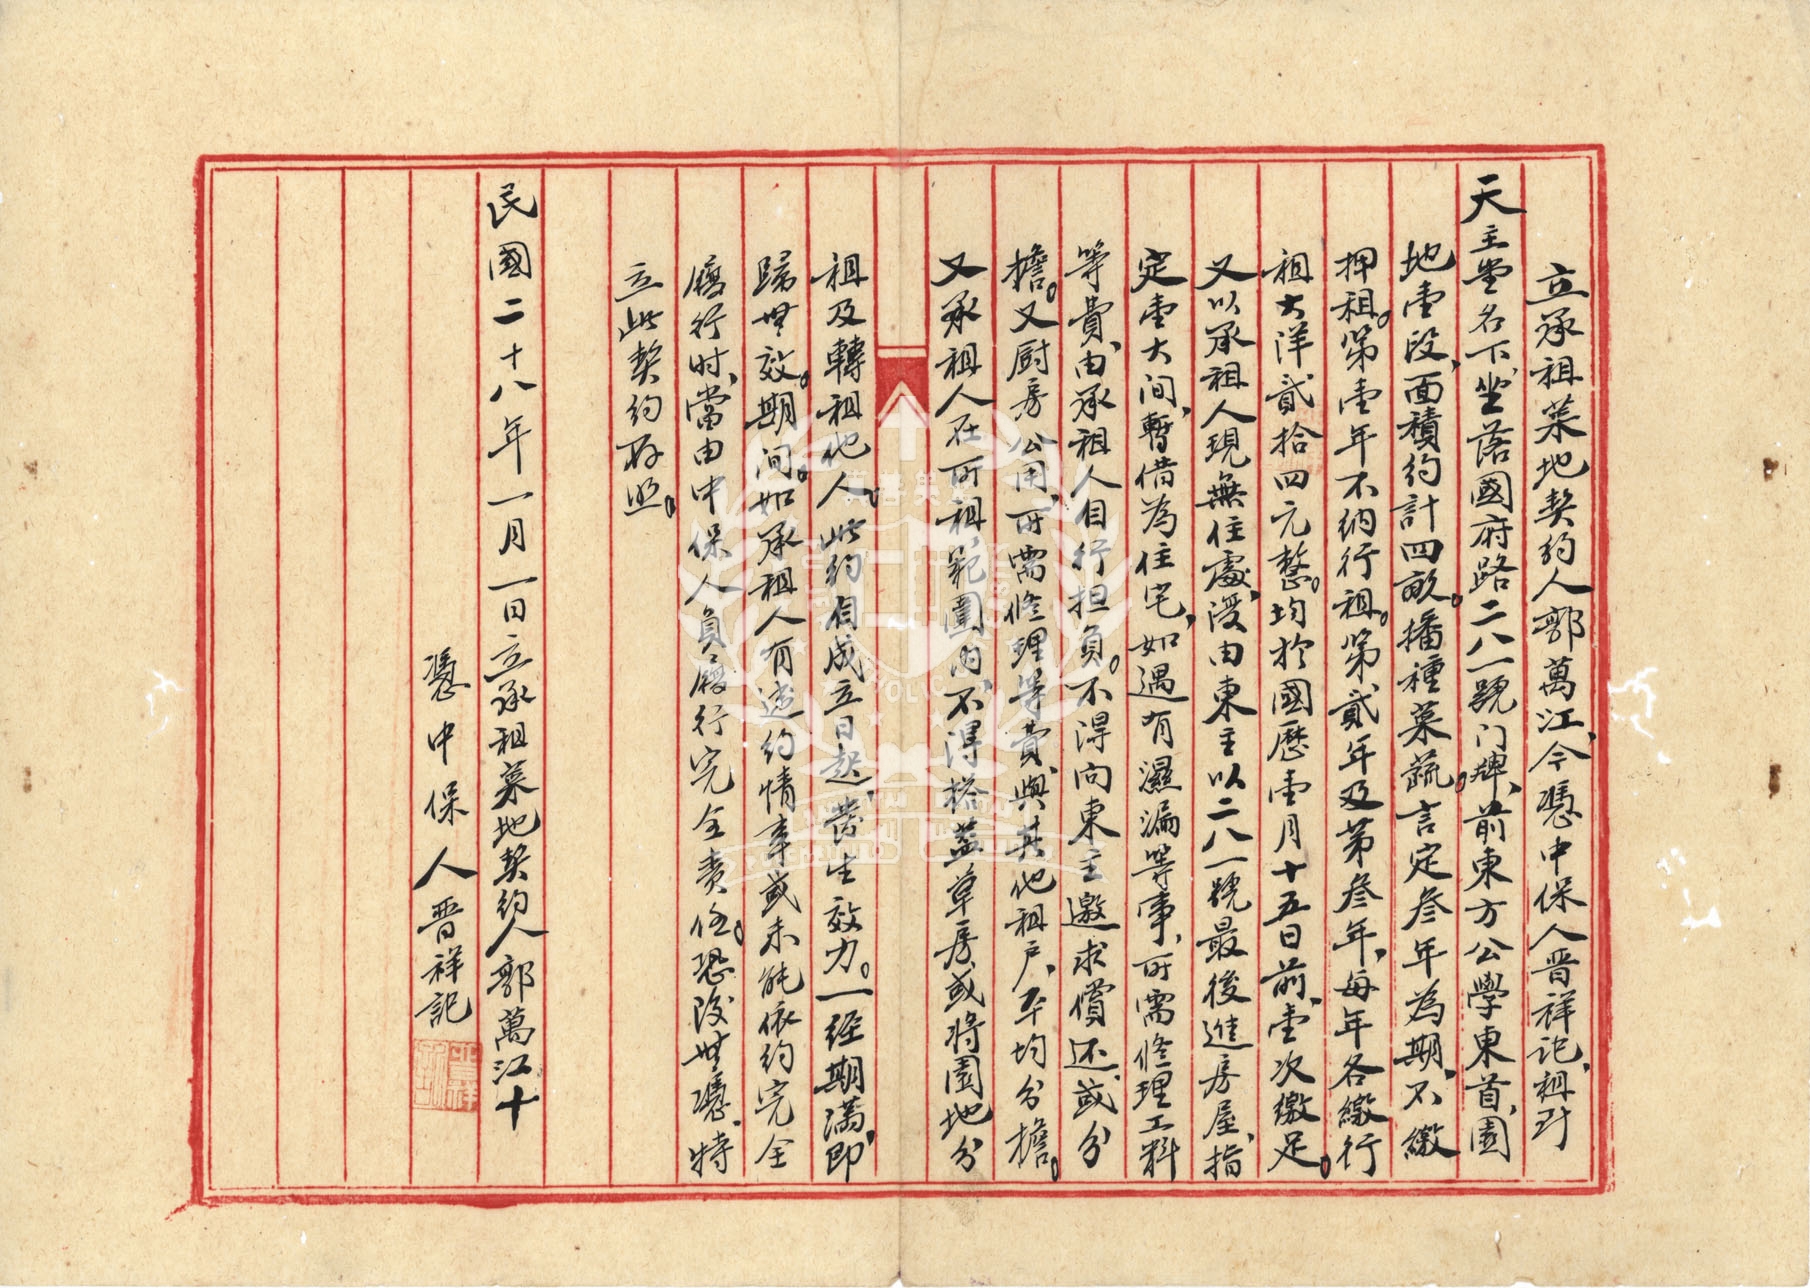 立承租菜地契約人郭萬江、今憑中保人晋祥記、租到
天主堂名下、坐落國府路二八一號门牌、前東方公學東首、園
地壹段、面積約計四畝。播種菜蔬。言定叁年為期、不繳
押租。第壹年不納行租。第貳年及第叁年、每年各繳行
租大洋貳拾四元整。均於國歷壹月十五日前、壹次繳足。
又以承租人現無住處、爰由東主以二八一號最後進房屋、指
定壹大间、暫借為住宅、如遇有濕漏等事、所需修理工料
等費、由承租人自行担負。不得向東主邀求償还、或分
擔。又廚房公用、所需修理等費、與其他租户、平均分擔。
又承租人在所租範圍内、不得搭蓋草房、或将園地分
租及轉租他人。此約自成立日起、發生效力。一經期滿、即
歸無效。期间。如承租人有违約情事或未能依約完全
履行时、當由中保人員履行完全责任。恐後無憑、特
立此契約存照。
民國二十八年一月一日立承租菜地契約人郭萬江十
憑中保人晋祥記